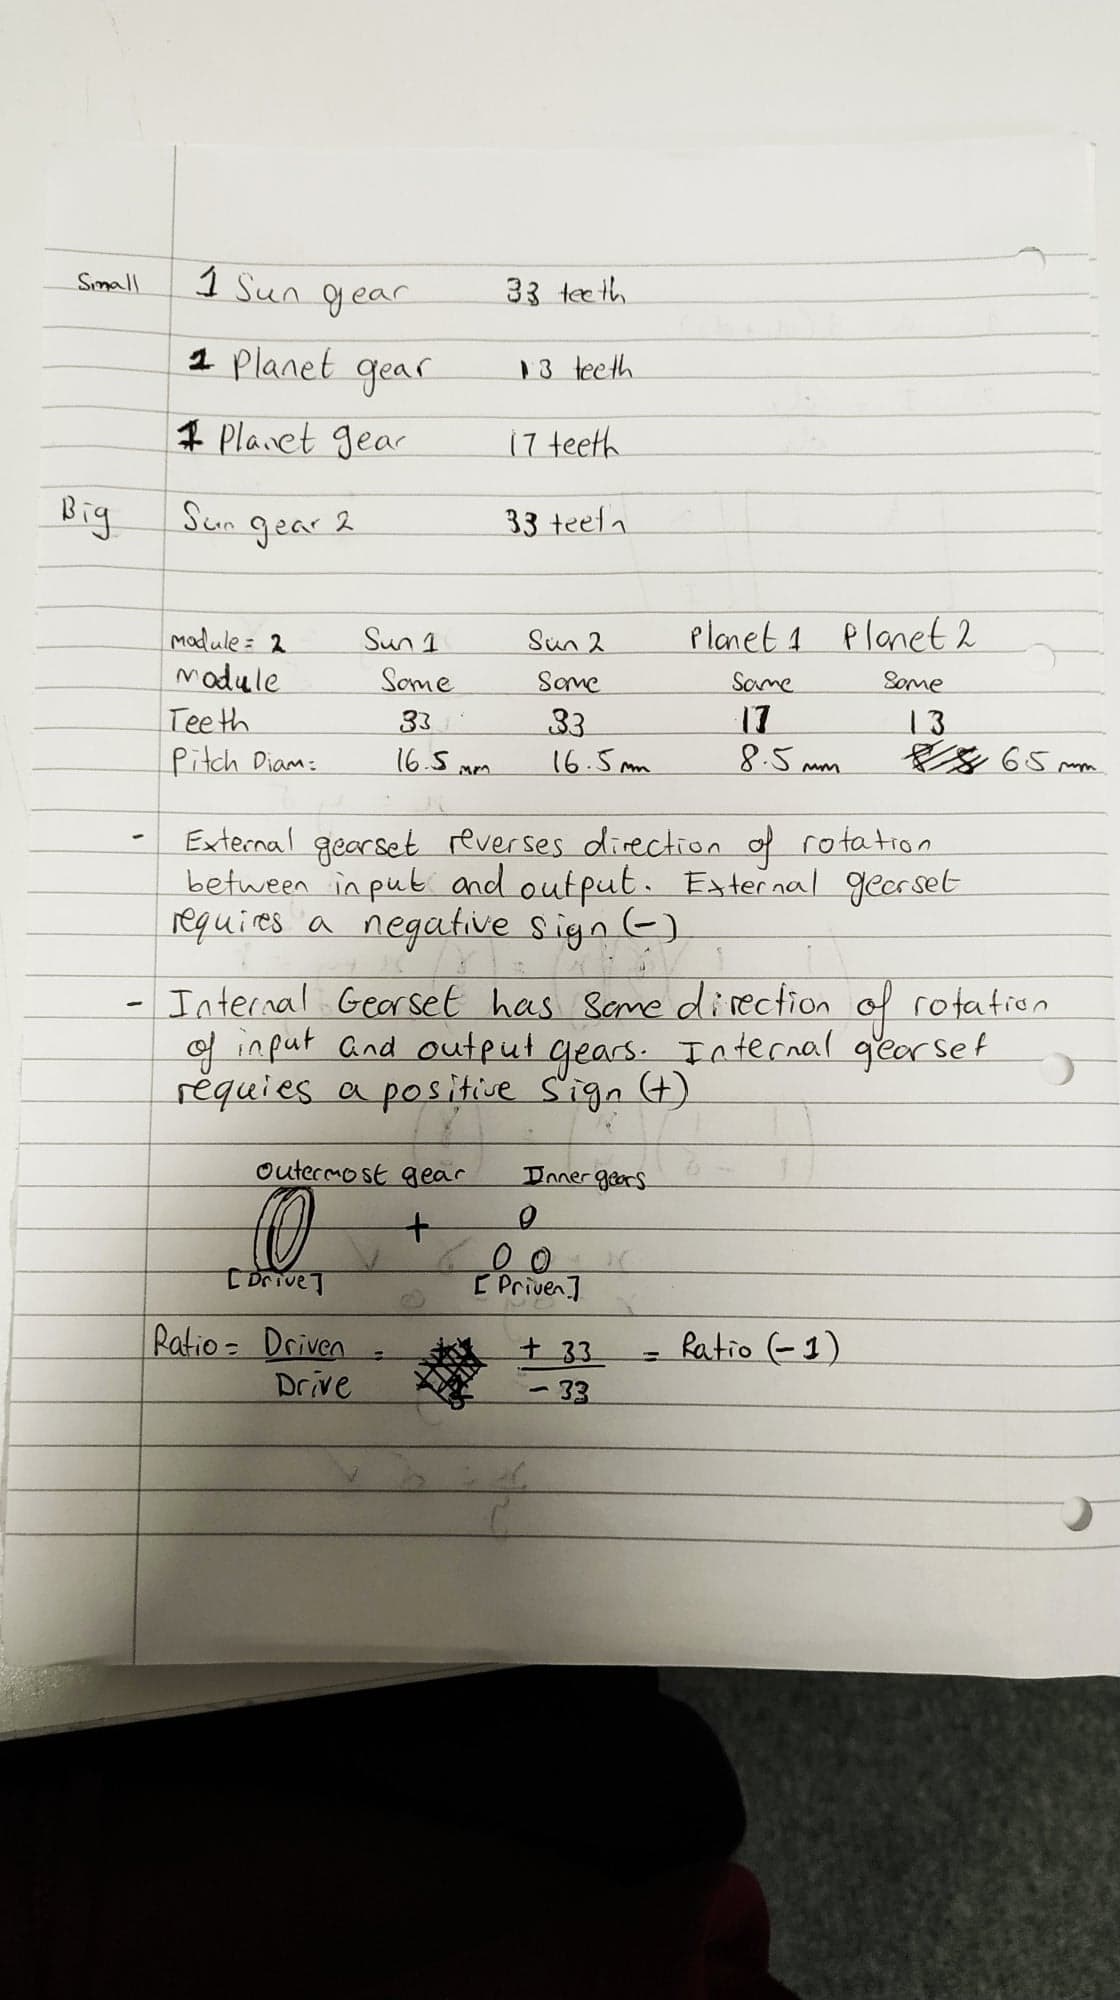 Small 1 Sun gear 33 teeth
1 Planet gear 13 teeth
1 Planet gear 17 teeth
Big Sun gear 2 33 teeth
module = 2 Sun 1 Sun 2 Planet 1 Planet 2
Module Same Same Same Same
Teeth 33 33 17 13
Pitch Diam: 16.5 mm 16.5 mm 8.5 mm 65 mm
- External gearset reverses direction of rotation
between input and output. External gearset
requires a negative sign (-)
- Internal Gearset has same direction of rotation
of input and output gears. Internal gearset
requies a positive sign (+)
Outermost gear Inner gears
+
[Drive] [Driven]
Ratio = Driven = + 33 = Ratio (-1)
Drive - 33